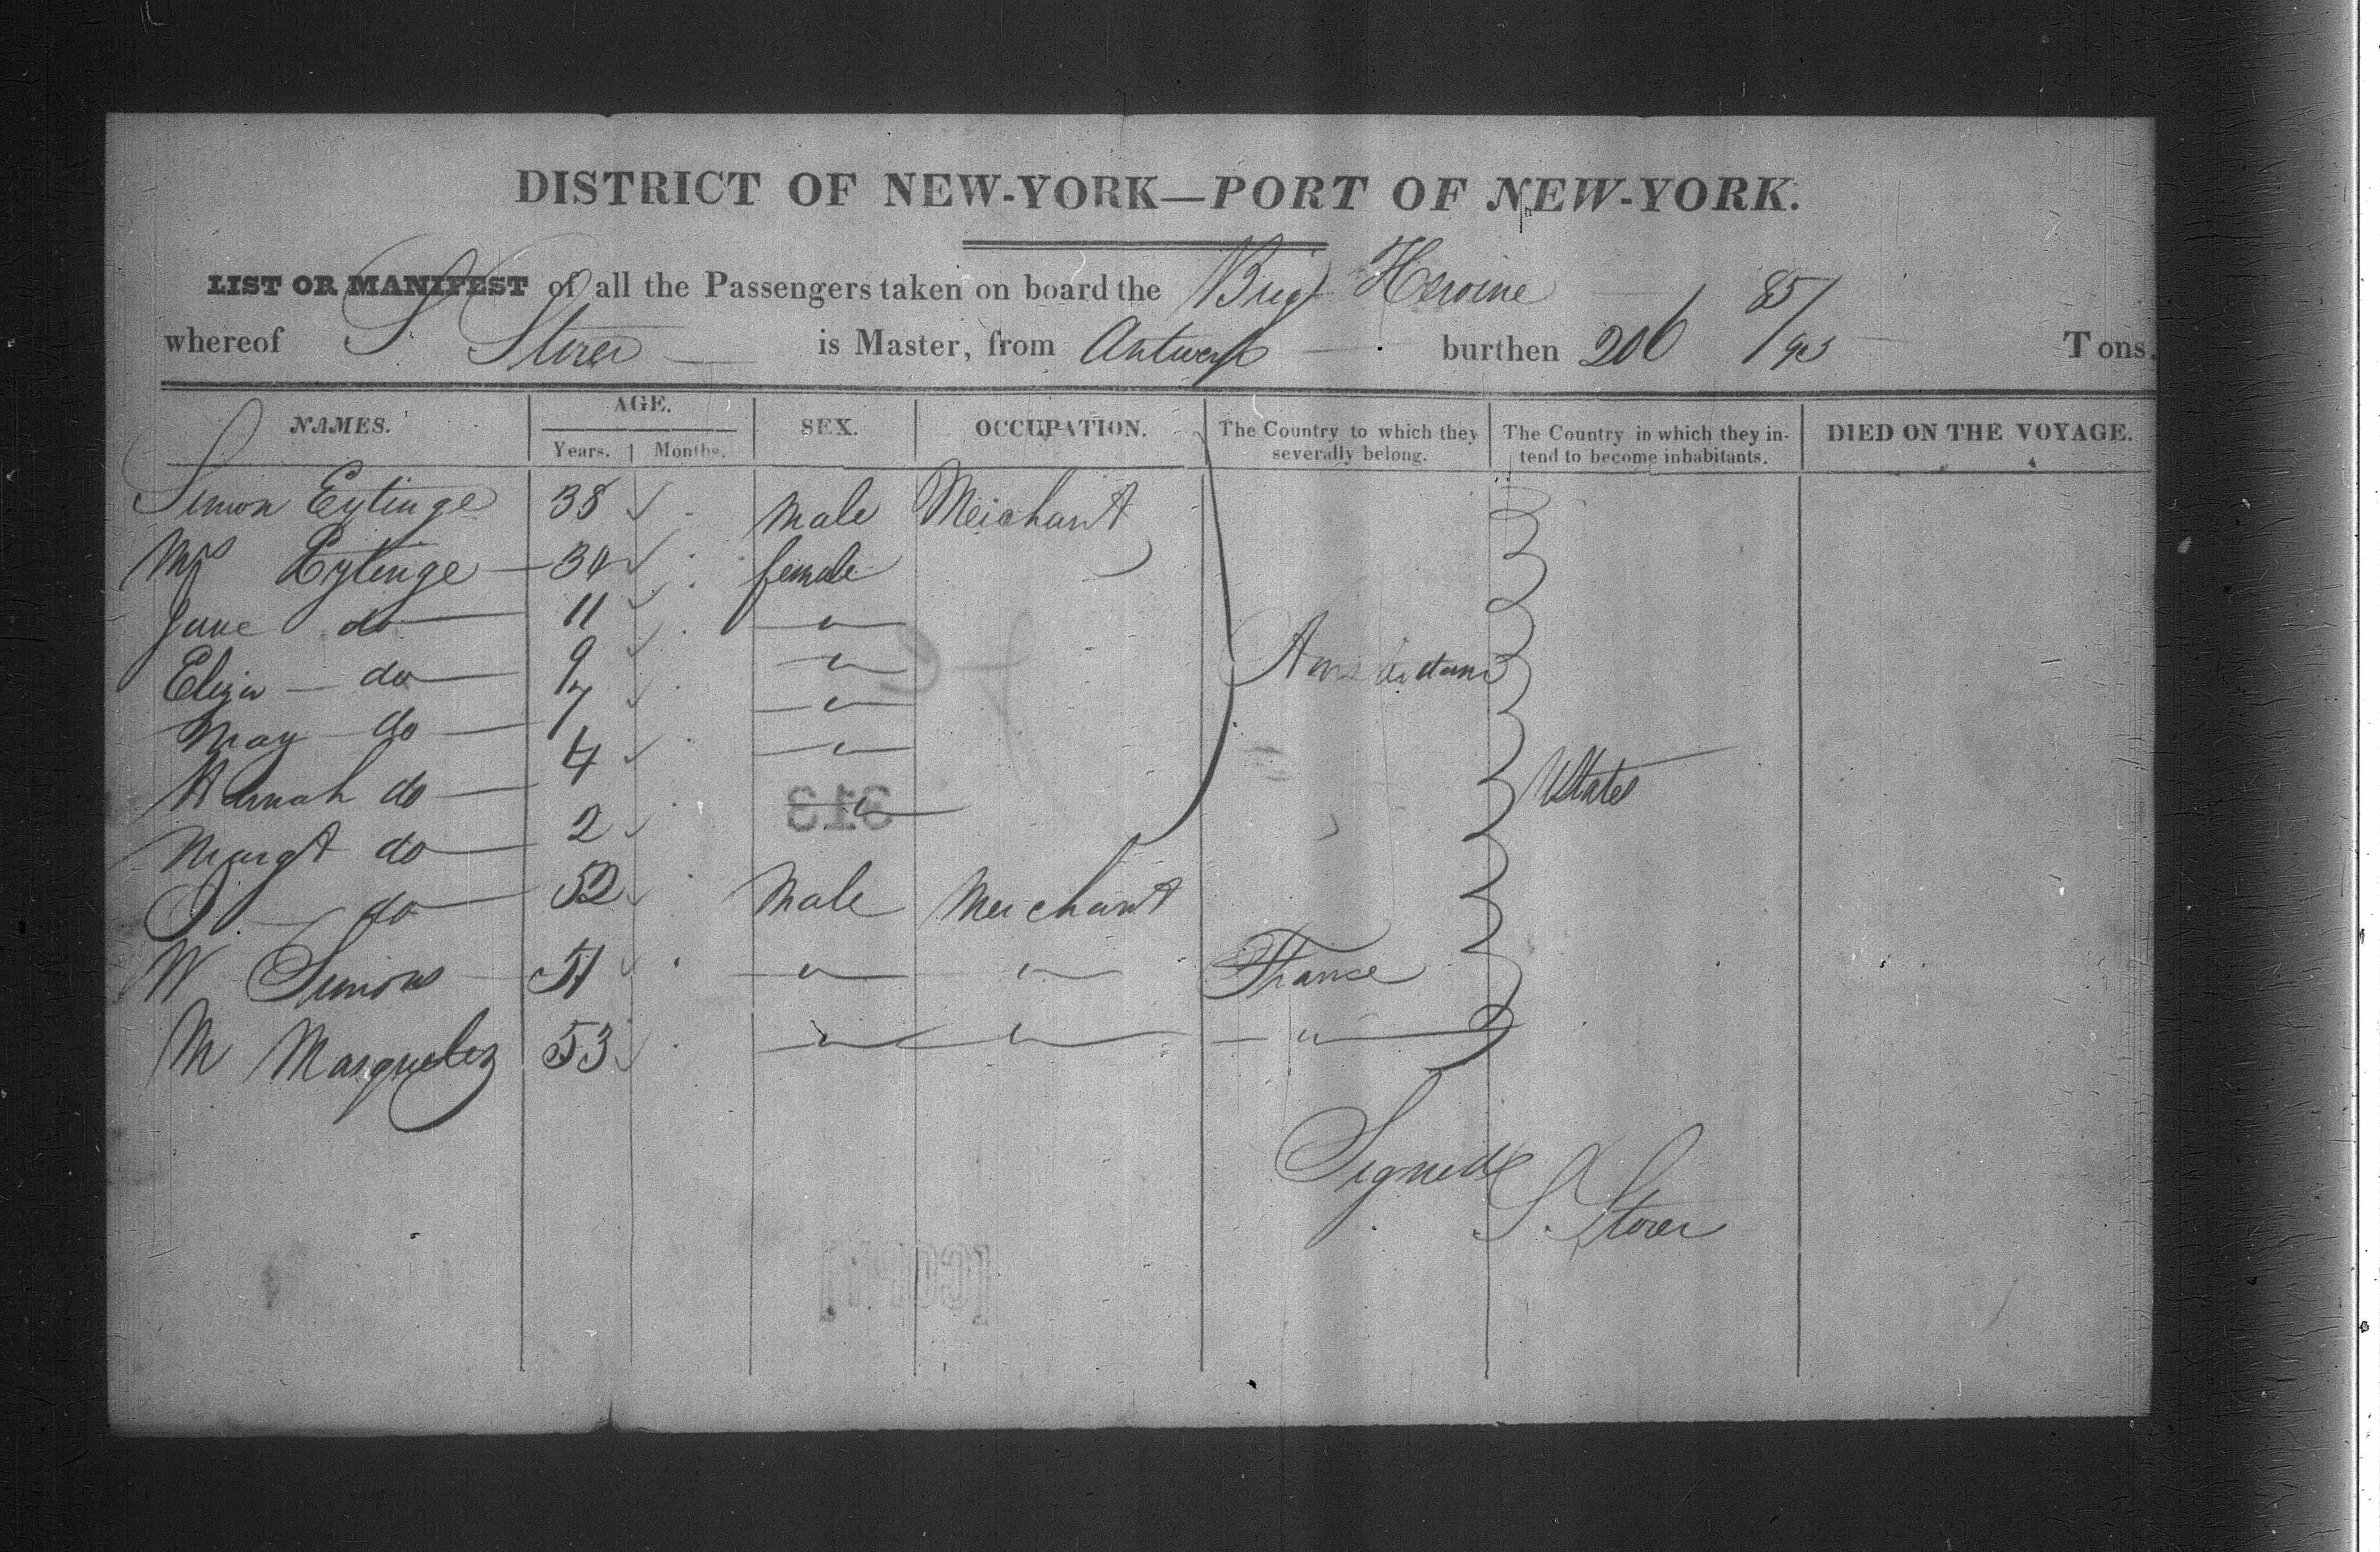 DISTRICT OF NEW-YORK—PORT OF NEW-YORK.
LIST OR MANIFEST of all the Passengers taken on board the Brig Heroine
whereof S Storer is Master, from Antwerp burthen 206 85/95 Tons.
NAMES. AGE. SEX. OCCUPATION. The Country to which they severally belong. The Country in which they intend to become inhabitants. DIED ON THE VOYAGE.
Years. Months.
Simon Eytinge 38 Male Merchant
Mrs Eytinge 30 female
Jane do 11 "
Eliza do 9 "
Mary do 7 " Amsterdam
Hannah do 4 " UStates
Margt do 2 "
do 52 Male Merchant
W Simons 51 " " France
M Masquelez 53 " " "
Signed
S Storer
313